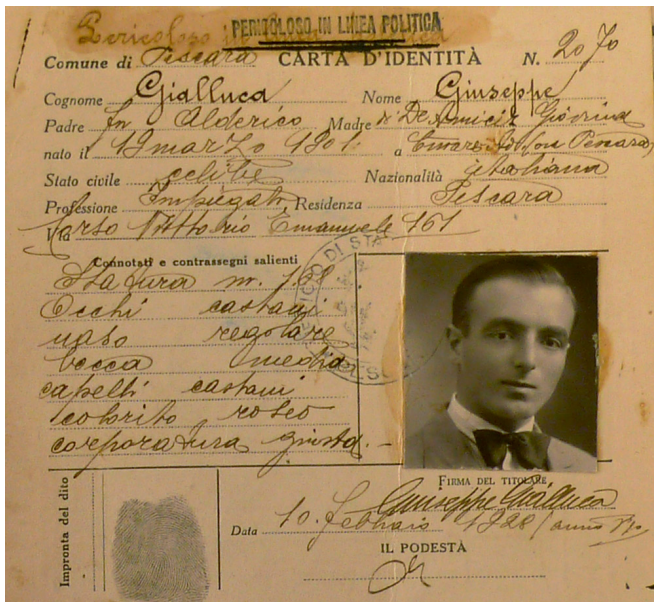 Pericoloso
PERICOLOSO IN LINEA POLITICA
Comune di Pescara CARTA D'IDENTITÀ N. 2070
Cognome Gialluca Nome Giuseppe
Padre fu Alderico Madre De Amicis Giovina
nato il 19 marzo 1901 a
Stato civile celibe Nazionalità italiana
Professione Impiegato Residenza Pescara
Via Corso Vittorio Emanuele 161
Connotati e contrassegni salienti
Statura m. 1,68
Occhi castani
naso regolare
bocca media
capelli castani
colorito roseo
corporatura giusta.-
FIRMA DEL TITOLARE
Giuseppe Gialluca
Data 10. febbraio 1928 (anno
IL PODESTÀ
Impronta del dito